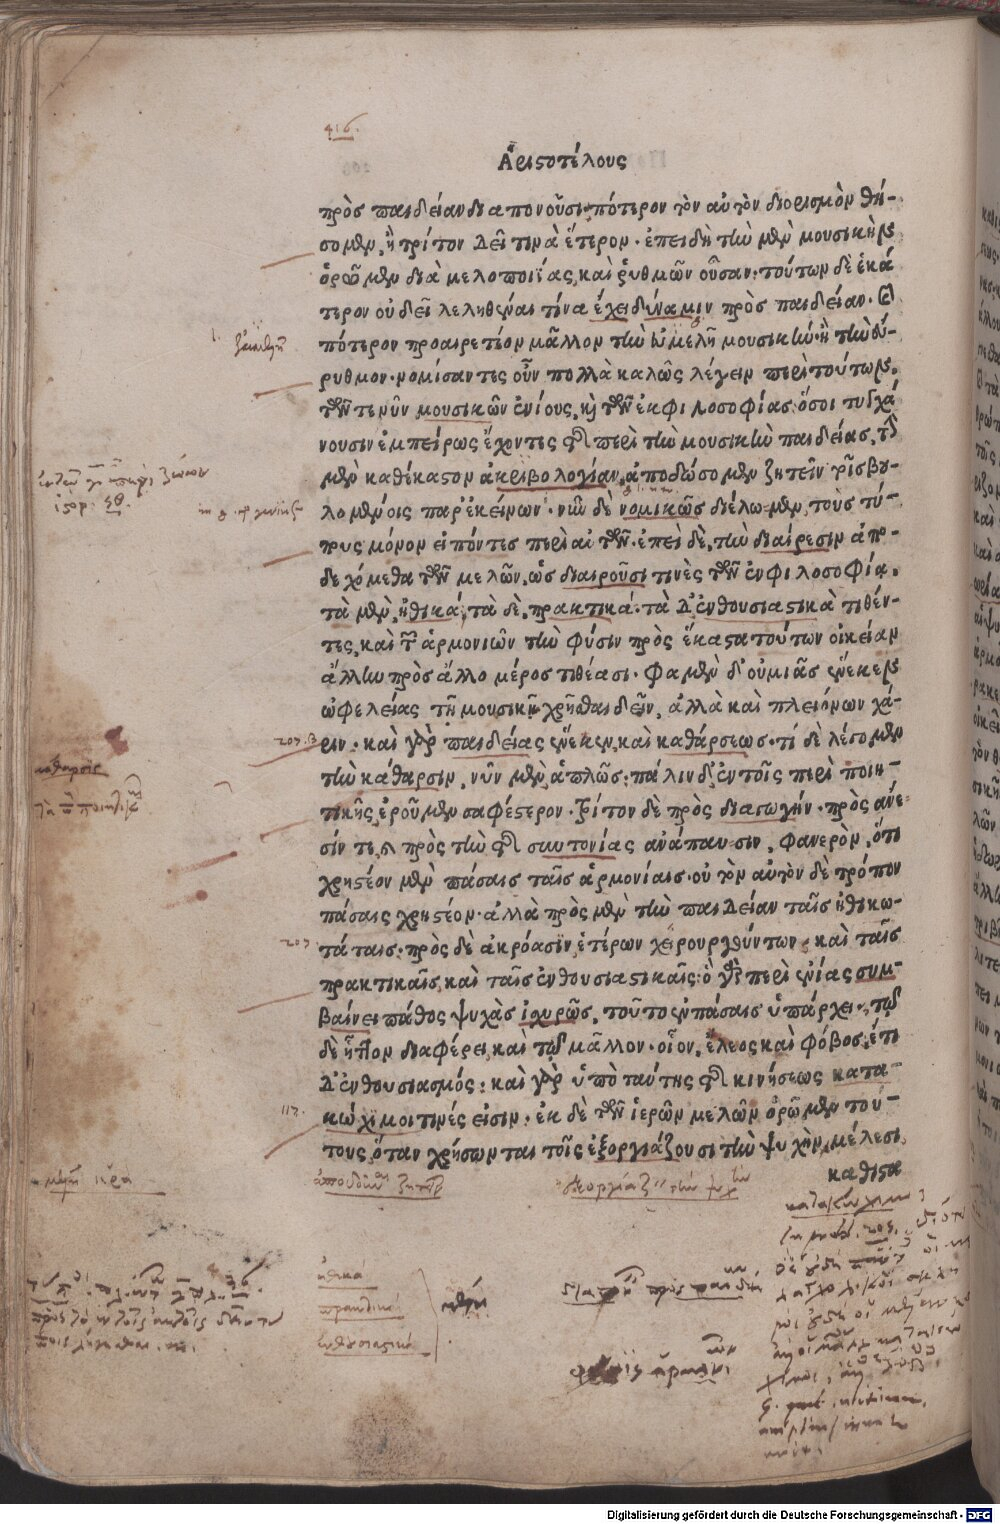 416.
Ἀριστοτέλους
πρὸς παιδείαν διαπονοῦσι πότερον τὸν αὐτὸν διορισμὸν θή-
σομεν, ἢ τρίτον δεῖ τινὰ ἕτερον. ἐπειδὴ τὴν μὲν μουσικὴν
ὁρῶμεν διὰ μελοποιΐας, καὶ ῥυθμῶν οὖσαν. τούτων δὲ ἑκά
τερον οὐ δεῖ λεληθέναι τίνα ἔχει δύναμιν πρὸς παιδείαν. καὶ
πότερον προαιρετέον μᾶλλον τὴν εὐμελῆ μουσικὴν. ἢ τὴν εὔ-
ρυθμον. νομίσαντες οὖν πολλὰ καλῶς λέγειν περὶ τούτων,
τῶν τε νῦν μουσικῶν ἐνίους, καὶ τῶν ἐκ φιλοσοφίας ὅσοι τυγχά
νουσιν ἐμπείρως ἔχοντες τῆς περὶ τὴν μουσικὴν παιδείας, τὴν
μὲν καθέκαστον ἀκριβολογίαν, ἀποδώσομεν ζητεῖν τοῖς βου-
λομένοις παρ' ἐκείνων. νῦν δὲ νομικῶς διέλωμεν, τοὺς τύ-
πους μόνον εἰπόντες περὶ αὐτῶν. ἐπεὶ δὲ, τὴν διαίρεσιν ἀπο-
δεχόμεθα τῶν μελῶν, ὡς διαιροῦσί τινὲς τῶν ἐν φιλοσοφίᾳ.
τὰ μὲν, ἠθικά, τὰ δὲ, πρακτικά. τὰ δ' ἐνθουσιαστικὰ τιθέν-
τες, καὶ τῶν ἁρμονιῶν τὴν φύσιν πρὸς ἕκαστα τούτων οἰκείαν
ἄλλην πρὸς ἄλλο μέρος τιθέασι. φαμὲν δ' οὐ μιᾶς ἕνεκεν
ὠφελείας τῇ μουσικῇ χρῆσθαι δεῖν, ἀλλὰ καὶ πλειόνων χά-
ριν. καὶ γὰρ παιδείας ἕνεκεν, καὶ καθάρσεως. τί δὲ λέγομεν
τὴν κάθαρσιν, νῦν μὲν ἁπλῶς. πάλιν δ' ἐν τοῖς περὶ ποιη-
τικῆς ἐροῦμεν σαφέστερον. τρίτον δὲ πρὸς διαγωγήν. πρὸς ἄνε-
σίν τε, καὶ πρὸς τὴν τῆς συντονίας ἀνάπαυσιν, φανερὸν, ὅτι
χρηστέον μὲν πάσαις ταῖς ἁρμονίαις. οὐ τὸν αὐτὸν δὲ τρόπον
πάσαις χρηστέον. ἀλλὰ πρὸς μὲν τὴν παιδείαν ταῖς ἠθικω-
τάταις. πρὸς δὲ ἀκρόασιν ἑτέρων χειρουργούντων. καὶ ταῖς
πρακτικαῖς, καὶ ταῖς ἐνθουσιαστικαῖς. ὃ γὰρ περὶ ἐνίας συμ-
βαίνει πάθος ψυχὰς ἰσχυρῶς, τοῦτο ἐν πάσαις ὑπάρχει. τῷ
δὲ ἧττον διαφέρει, καὶ τῷ μᾶλλον. οἷον, ἔλεος καὶ φόβος, ἔτι
δ' ἐνθουσιασμός. καὶ γὰρ ὑπὸ ταύτης τῆς κινήσεως κατα-
κώχιμοι τινές εἰσιν. ἐκ δὲ τῶν ἱερῶν μελῶν ὁρῶμεν τού-
τους, ὅταν χρήσωνται τοῖς ἐξοργιάζουσι τὴν ψυχὴν, μέλεσι,
καθιστα
207.
κάθαρσις
207.
117.
ἠθικά
πρακτικά
ἐνθουσιαστικά
Digitalisierung gefördert durch die Deutsche Forschungsgemeinschaft - DFG